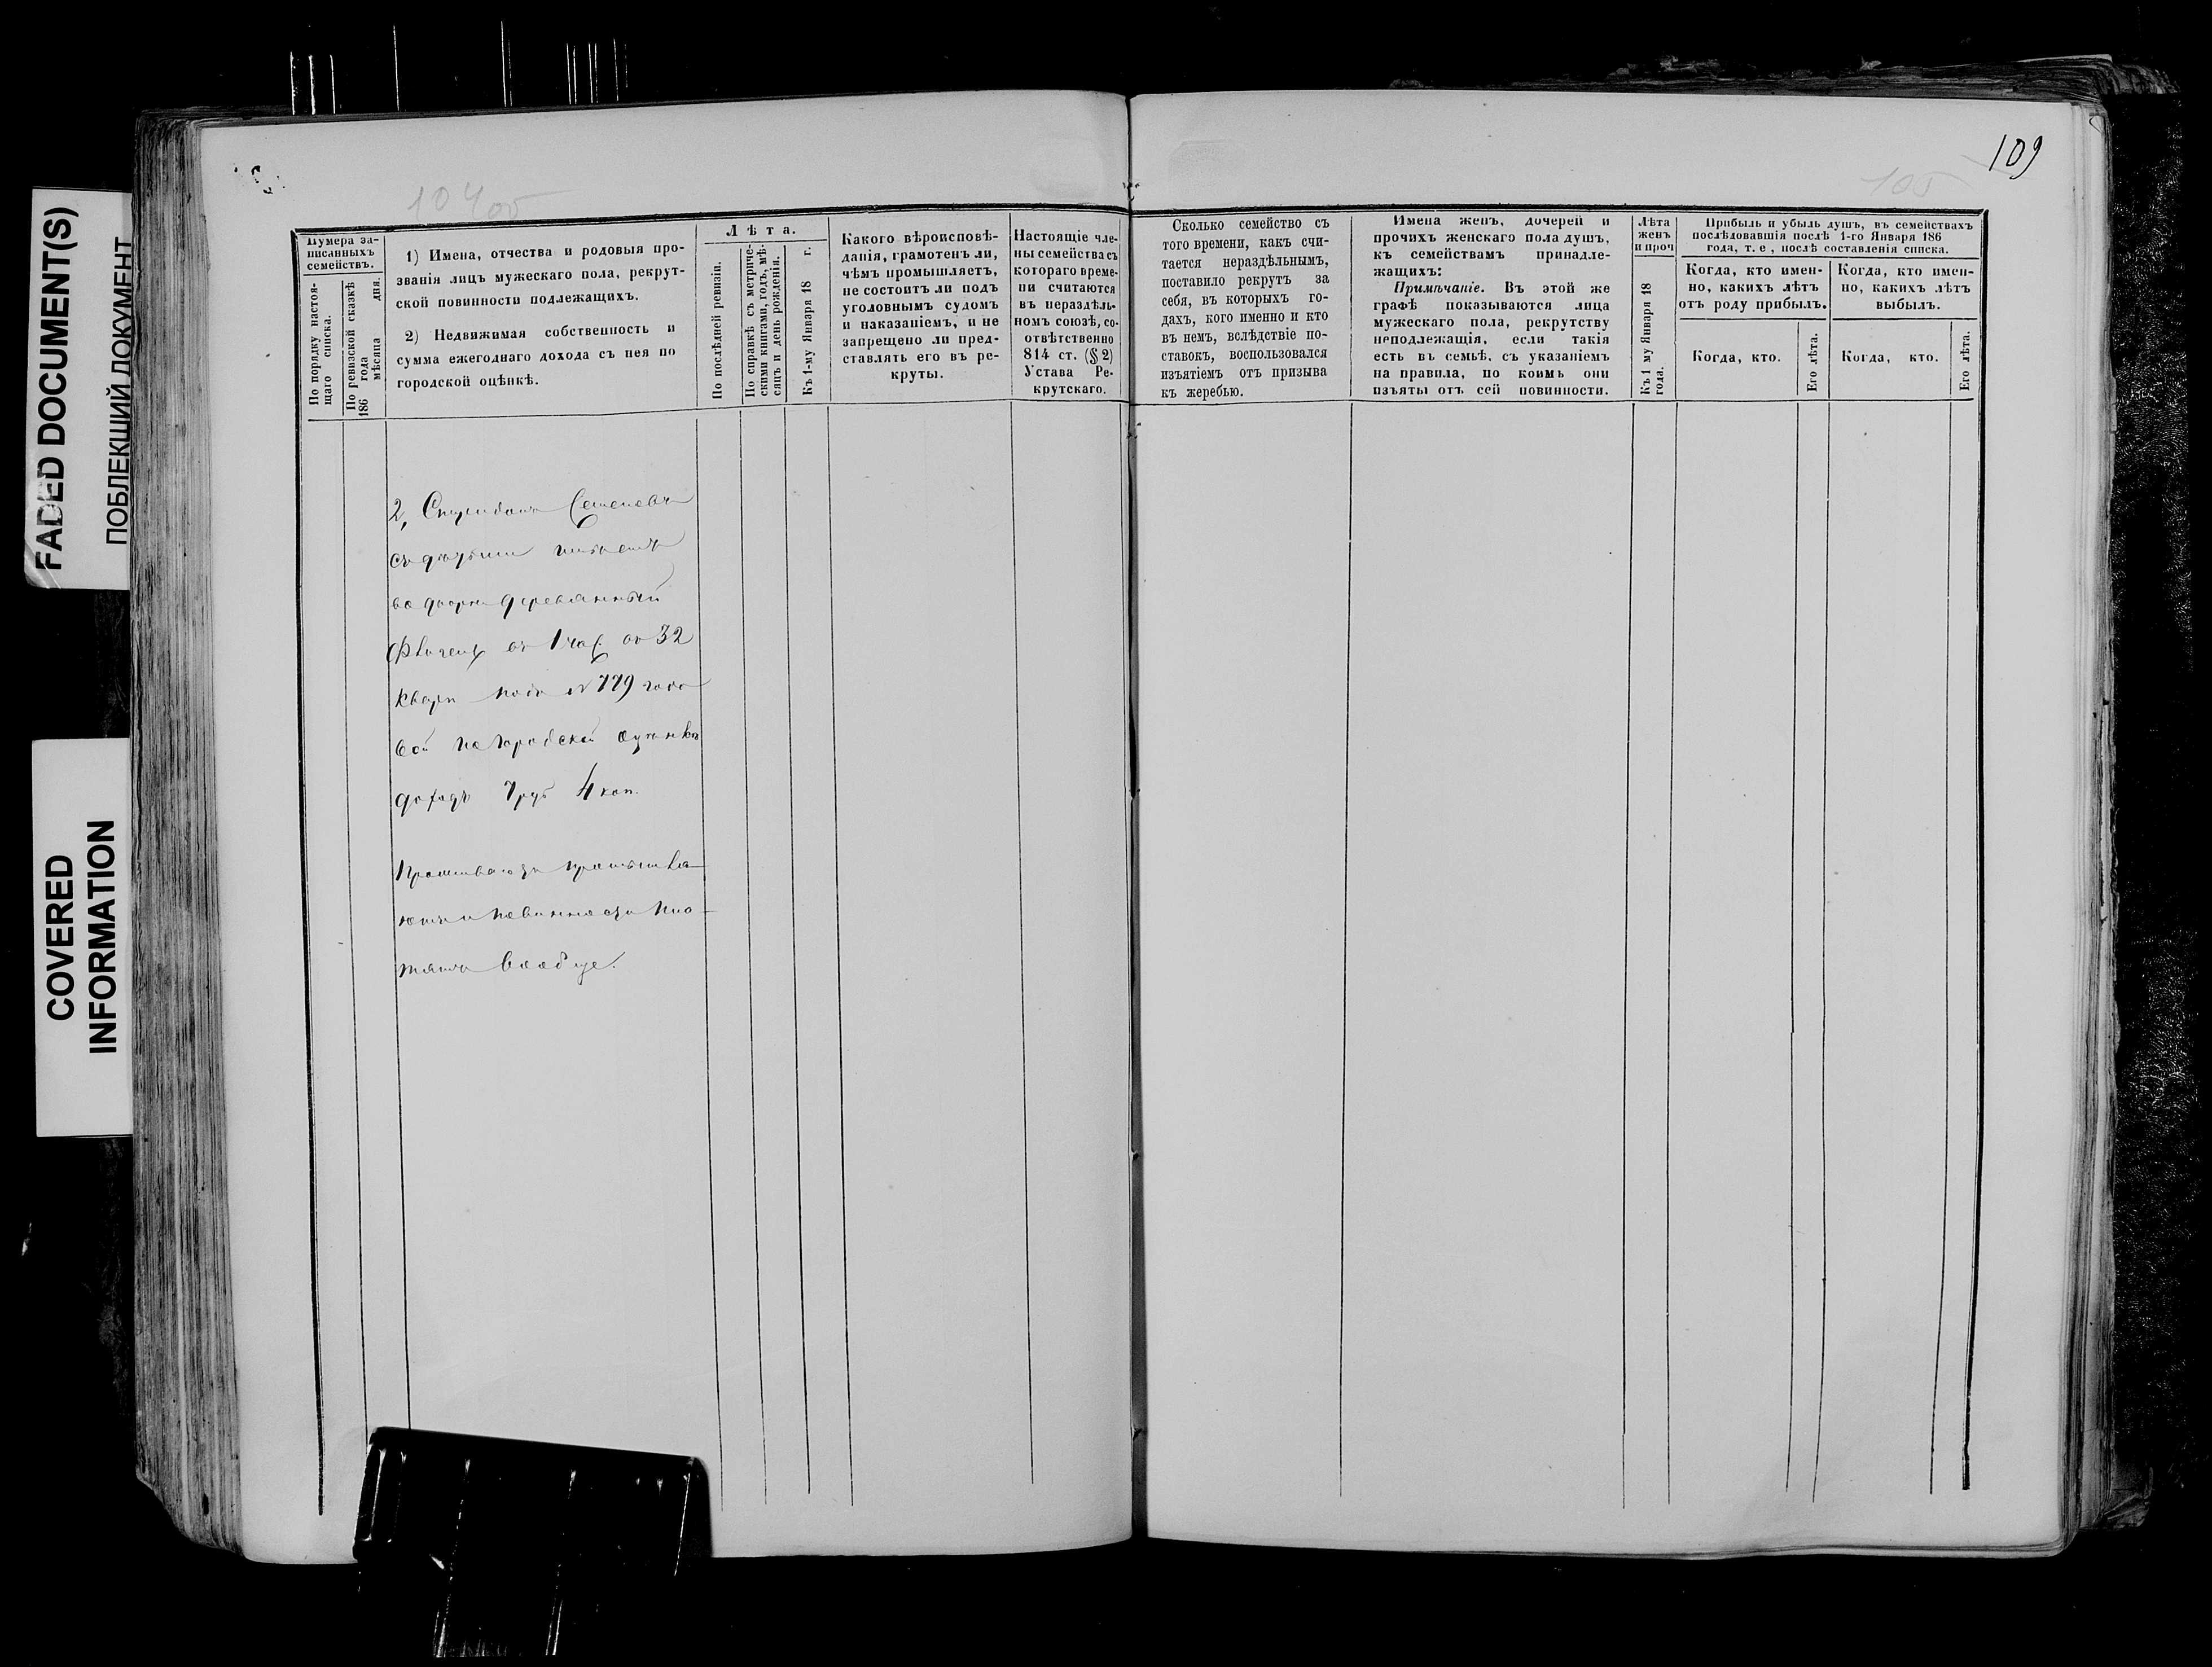 FADED DOCUMENT(S)
ПОБЛЕКШИЙ ДОКУМЕНТ
COVERED
INFORMATION
104об
Нумера за-
писанныхъ
семействъ.
По порядку настоя-
щаго списка.
По ревизской сказкѣ
186 года мѣсяца дня.
1) Имена, отчества и родовыя про-
званія лицъ мужескаго пола, рекрут-
ской повинности подлежащихъ.
2) Недвижимая собственность и
сумма ежегоднаго дохода съ нея по
городской оцѣнкѣ.
Лѣта.
По послѣдней ревизіи.
По справкѣ съ метриче-
скими книгами, годъ, мѣ-
сяцъ и день рожденія.
Къ 1-му Января 18 г.
Какого вѣроисповѣ-
данія, грамотенъ ли,
чѣмъ промышляетъ,
не состоитъ ли подъ
уголовнымъ судомъ
и наказаніемъ, и не
запрещено ли пред-
ставлять его въ ре-
круты.
Настоящіе чле-
ны семейства съ
котораго време-
ни считаются
въ нераздѣль-
номъ союзѣ, со-
отвѣтственно
814 ст. (§ 2)
Устава Ре-
крутскаго.
2, Спиридонъ Семеновъ
съ дѣтьми имѣетъ
во дворѣ деревянный
Флигель въ 1 час. въ 32
Кварт подъ № 779 годо
вой по городской оцѣнкѣ
доходъ 7 руб 4 коп.
повинности пла-
тятъ вообще.
109
105
Сколько семейство съ
того времени, какъ счи-
тается нераздѣльнымъ,
поставило рекрутъ за
себя, въ которыхъ го-
дахъ, кого именно и кто
въ немъ, вслѣдствіе по-
ставокъ, воспользовался
изъятіемъ отъ призыва
къ жеребью.
Имена женъ, дочерей и
прочихъ женскаго пола душъ,
къ семействамъ принадле-
жащихъ:
Примѣчаніе. Въ этой же
графѣ показываются лица
мужескаго пола, рекрутству
неподлежащія, если такія
есть въ семьѣ, съ указаніемъ
на правила, по коимъ они
изъяты отъ сей повинности.
Лѣта
женъ
и проч
Къ 1 му Января 18
года.
Прибыль и убыль душъ, въ семействахъ
послѣдовавшія послѣ 1-го Января 186
года, т. е, послѣ составленія списка.
Когда, кто имен-
но, какихъ лѣтъ
отъ роду прибылъ.
Когда, кто.
Его лѣта.
Когда, кто имен-
но, какихъ лѣтъ
выбылъ.
Когда, кто.
Его лѣта.